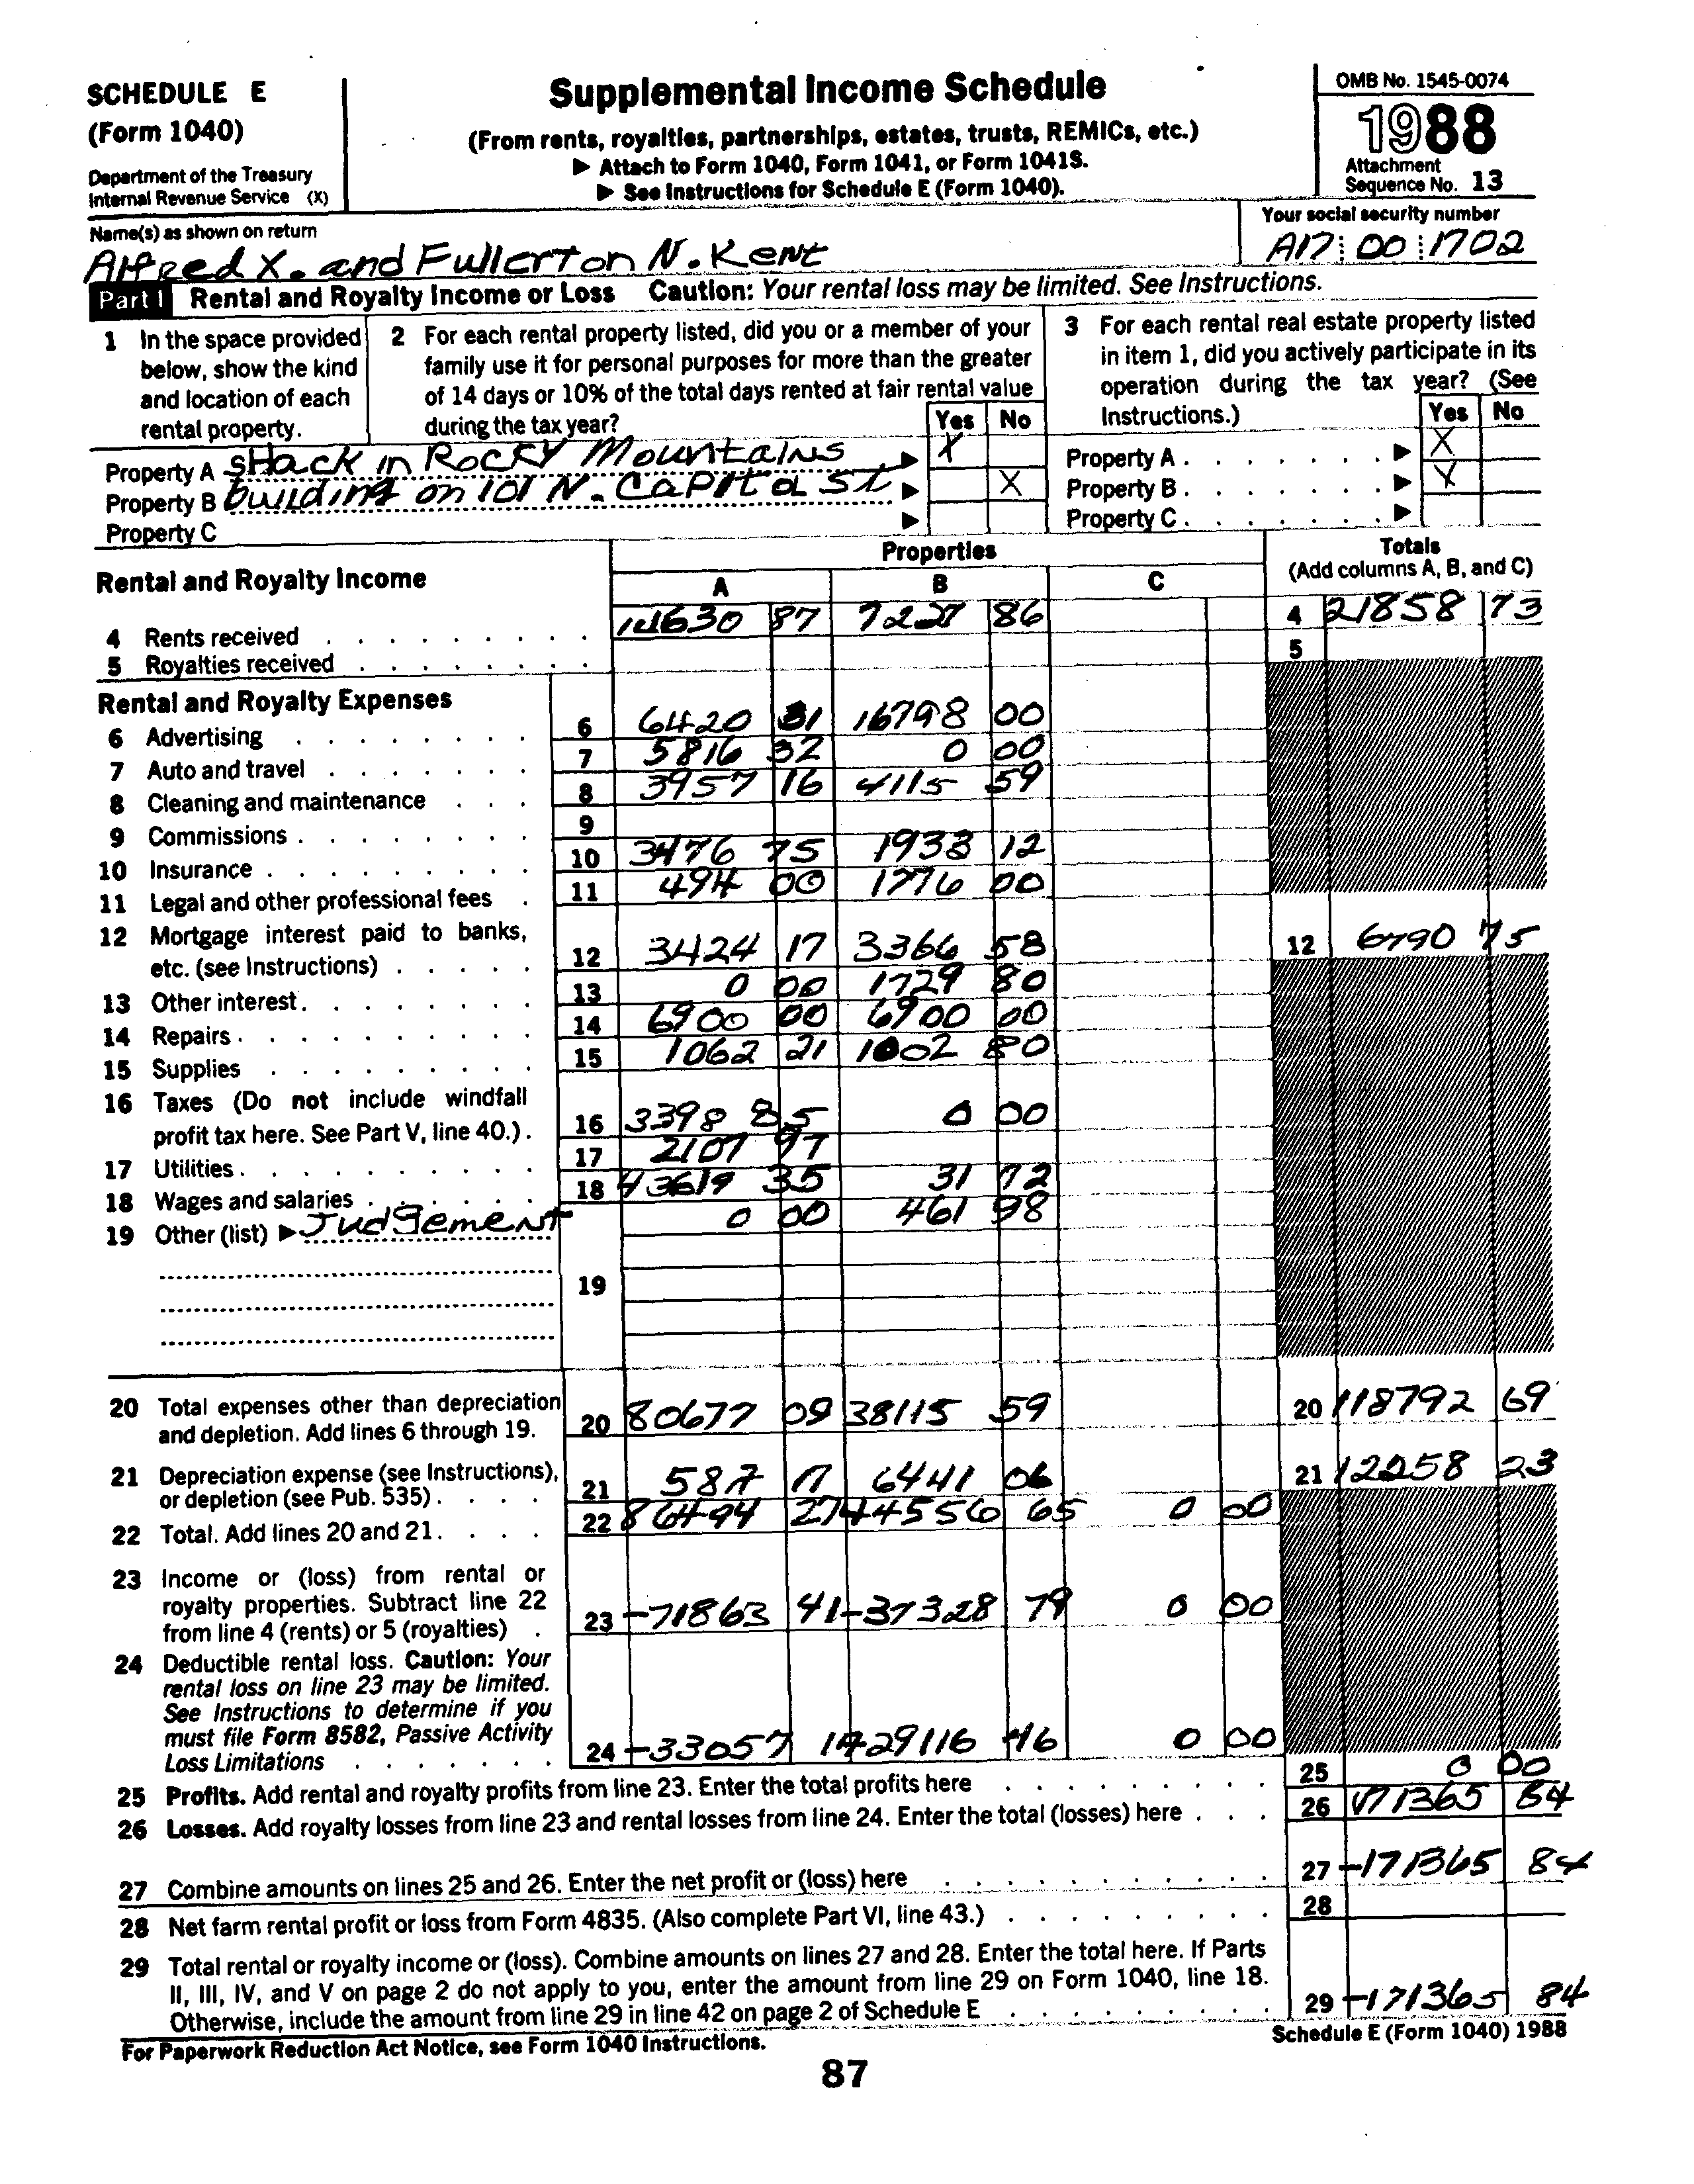 SCHEDULE E
(Form 1040)
Department of the Treasury
Internal Revenue Service (X)
Supplemental Income Schedule
(From rents, royalties, partnerships, estates, trusts, REMICs, etc.)
▶ Attach to Form 1040, Form 1041, or Form 1041S.
▶ See Instructions for Schedule E (Form 1040).
OMB No. 1545-0074
1988
Attachment
Sequence No. 13
Name(s) as shown on return
Alfred X. and Fullerton N. Kent
Your social security number
A17 00 1702
Part I Rental and Royalty Income or Loss Caution: Your rental loss may be limited. See Instructions.
1 In the space provided
below, show the kind
and location of each
rental property.
2 For each rental property listed, did you or a member of your
family use it for personal purposes for more than the greater
of 14 days or 10% of the total days rented at fair rental value
during the tax year?
Yes No
3 For each rental real estate property listed
in item 1, did you actively participate in its
operation during the tax year? (See
Instructions.)
Yes No
Property A SHack in Rocky Mountains ▶ X
Property B building on 101 N. Capita St ▶ X
Property C ▶
Property A ▶ X
Property B ▶ X
Property C ▶
Rental and Royalty Income
Properties
A B C
Totals
(Add columns A, B, and C)
4 Rents received 14630 87 7227 86 4 21858 73
5 Royalties received 5
Rental and Royalty Expenses
6 Advertising 6 6420 31 16798 00
7 Auto and travel 7 5816 32 0 00
8 Cleaning and maintenance 8 3957 16 4115 59
9 Commissions 9
10 Insurance 10 3476 75 1933 12
11 Legal and other professional fees 11 494 00 1776 00
12 Mortgage interest paid to banks,
etc. (see Instructions) 12 3424 17 3366 58 12 6790 75
13 Other interest 13 0 00 1729 80
14 Repairs 14 6900 00 6900 00
15 Supplies 15 1062 21 1002 80
16 Taxes (Do not include windfall
profit tax here. See Part V, line 40.) 16 3398 85 0 00
17 Utilities 17 2107 97
18 Wages and salaries 18 43619 35 31 72
19 Other (list) ▶ Judgement 0 00 461 98
19
20 Total expenses other than depreciation
and depletion. Add lines 6 through 19. 20 80677 09 38115 59 20 118792 69
21 Depreciation expense (see Instructions),
or depletion (see Pub. 535) 21 587 17 6441 06 21 12258 23
22 Total. Add lines 20 and 21 22 86494 27 44556 65 0 00
23 Income or (loss) from rental or
royalty properties. Subtract line 22
from line 4 (rents) or 5 (royalties) 23 -71863 41 -37328 79 0 00
24 Deductible rental loss. Caution: Your
rental loss on line 23 may be limited.
See Instructions to determine if you
must file Form 8582, Passive Activity
Loss Limitations 24 -33057 29116 46 0 00
25 Profits. Add rental and royalty profits from line 23. Enter the total profits here 25 0 00
26 Losses. Add royalty losses from line 23 and rental losses from line 24. Enter the total (losses) here 26 171365 84
27 Combine amounts on lines 25 and 26. Enter the net profit or (loss) here 27 -171365 84
28 Net farm rental profit or loss from Form 4835. (Also complete Part VI, line 43.) 28
29 Total rental or royalty income or (loss). Combine amounts on lines 27 and 28. Enter the total here. If Parts
II, III, IV, and V on page 2 do not apply to you, enter the amount from line 29 on Form 1040, line 18.
Otherwise, include the amount from line 29 in line 42 on page 2 of Schedule E 29 -171365 84
For Paperwork Reduction Act Notice, see Form 1040 Instructions.
Schedule E (Form 1040) 1988
87